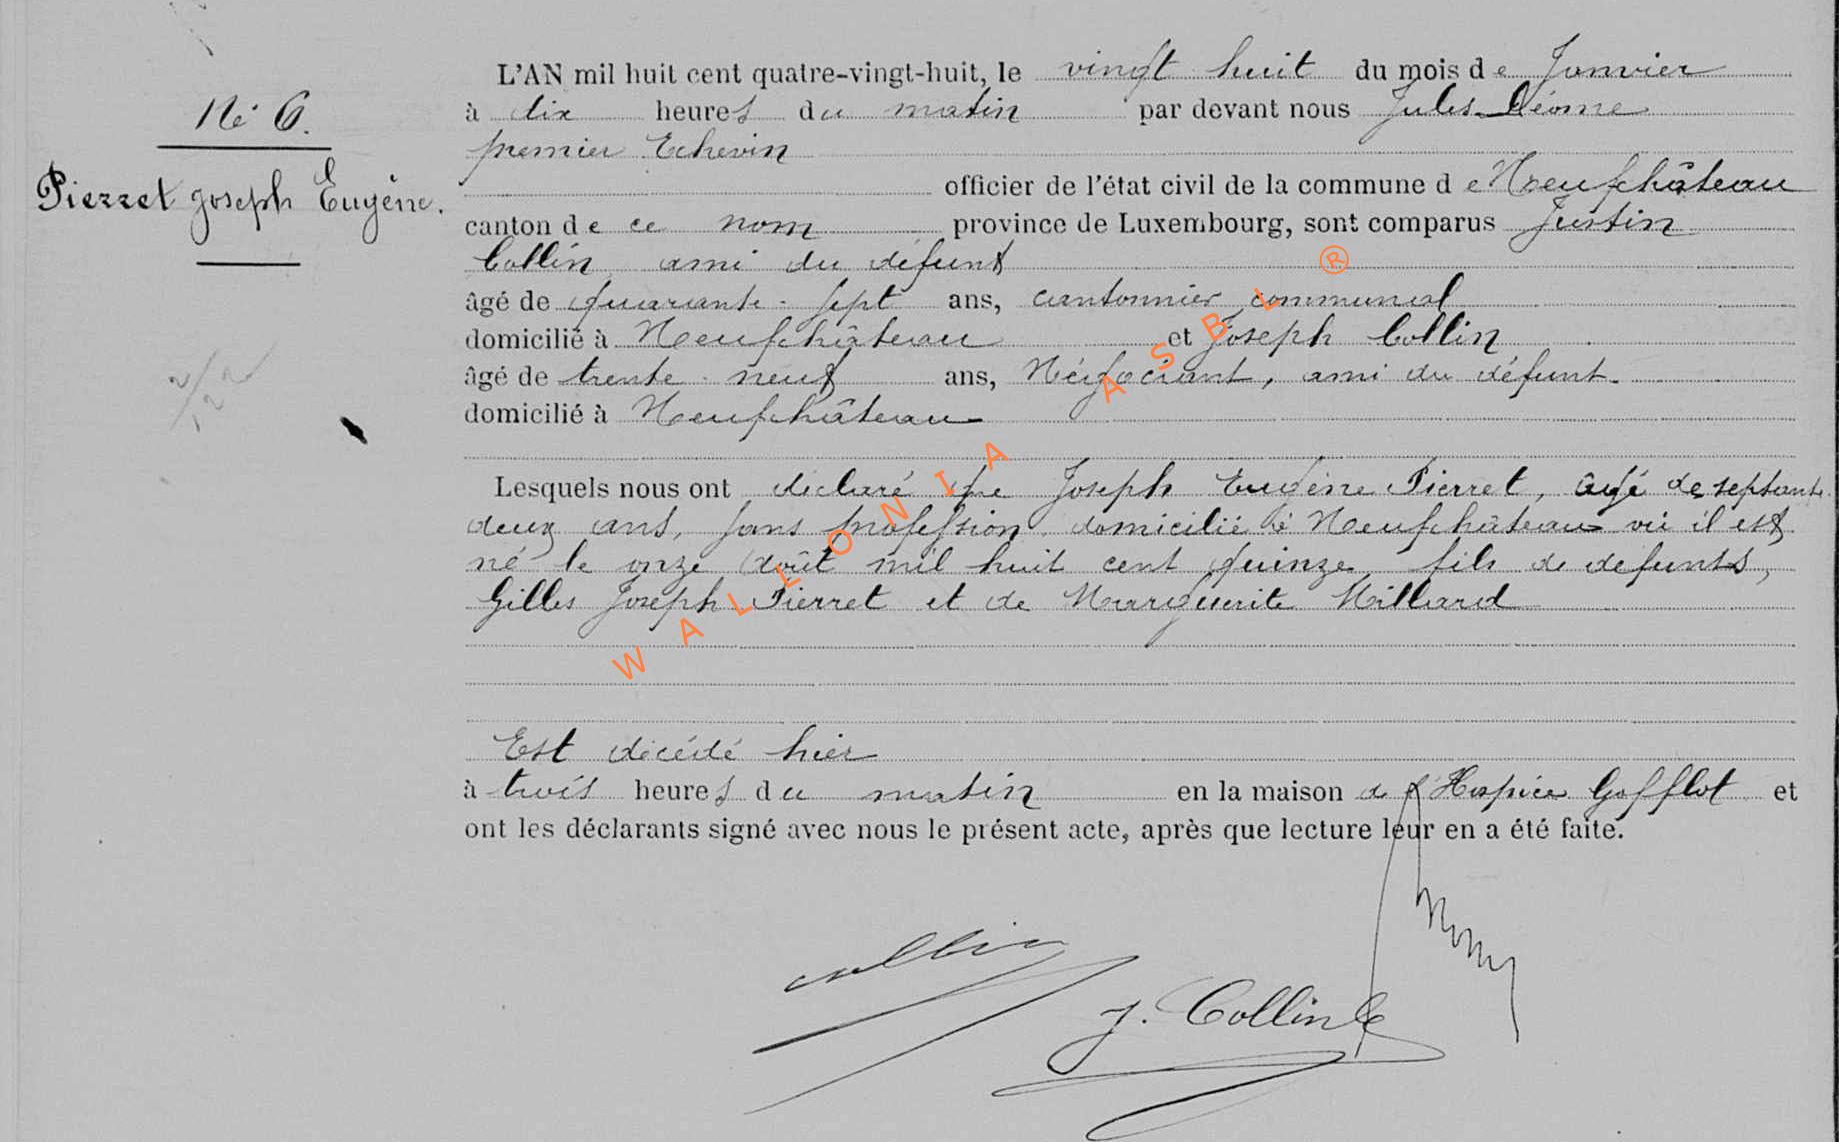 N° 6.
Pierret Joseph Eugène.
L'AN mil huit cent quatre-vingt-huit, le vingt huit du mois de Janvier
à dix heures du matin par devant nous Jules Léonne
premier Echevin
officier de l'état civil de la commune de Neufchâteau
canton de ce nom province de Luxembourg, sont comparus Justin
Collin, ami du défunt
âgé de quarante-sept ans, cantonnier communal
domicilié à Neufchâteau et Joseph Collin
âgé de trente-neuf ans, Négociant, ami du défunt.
domicilié à Neufchâteau
Lesquels nous ont déclaré que Joseph Eugène Pierret, âgé de septante
deux ans, sans profession, domicilié à Neufchâteau où il est
né le onze Août mil huit cent quinze, fils de défunts,
Gilles Joseph Pierret et de Marguerite Milliard
Est décédé hier
à trois heures du matin en la maison de l'Hospice Gofflot et
ont les déclarants signé avec nous le présent acte, après que lecture leur en a été faite.
Collin
J. Collin
WALLONIA ASBL ®